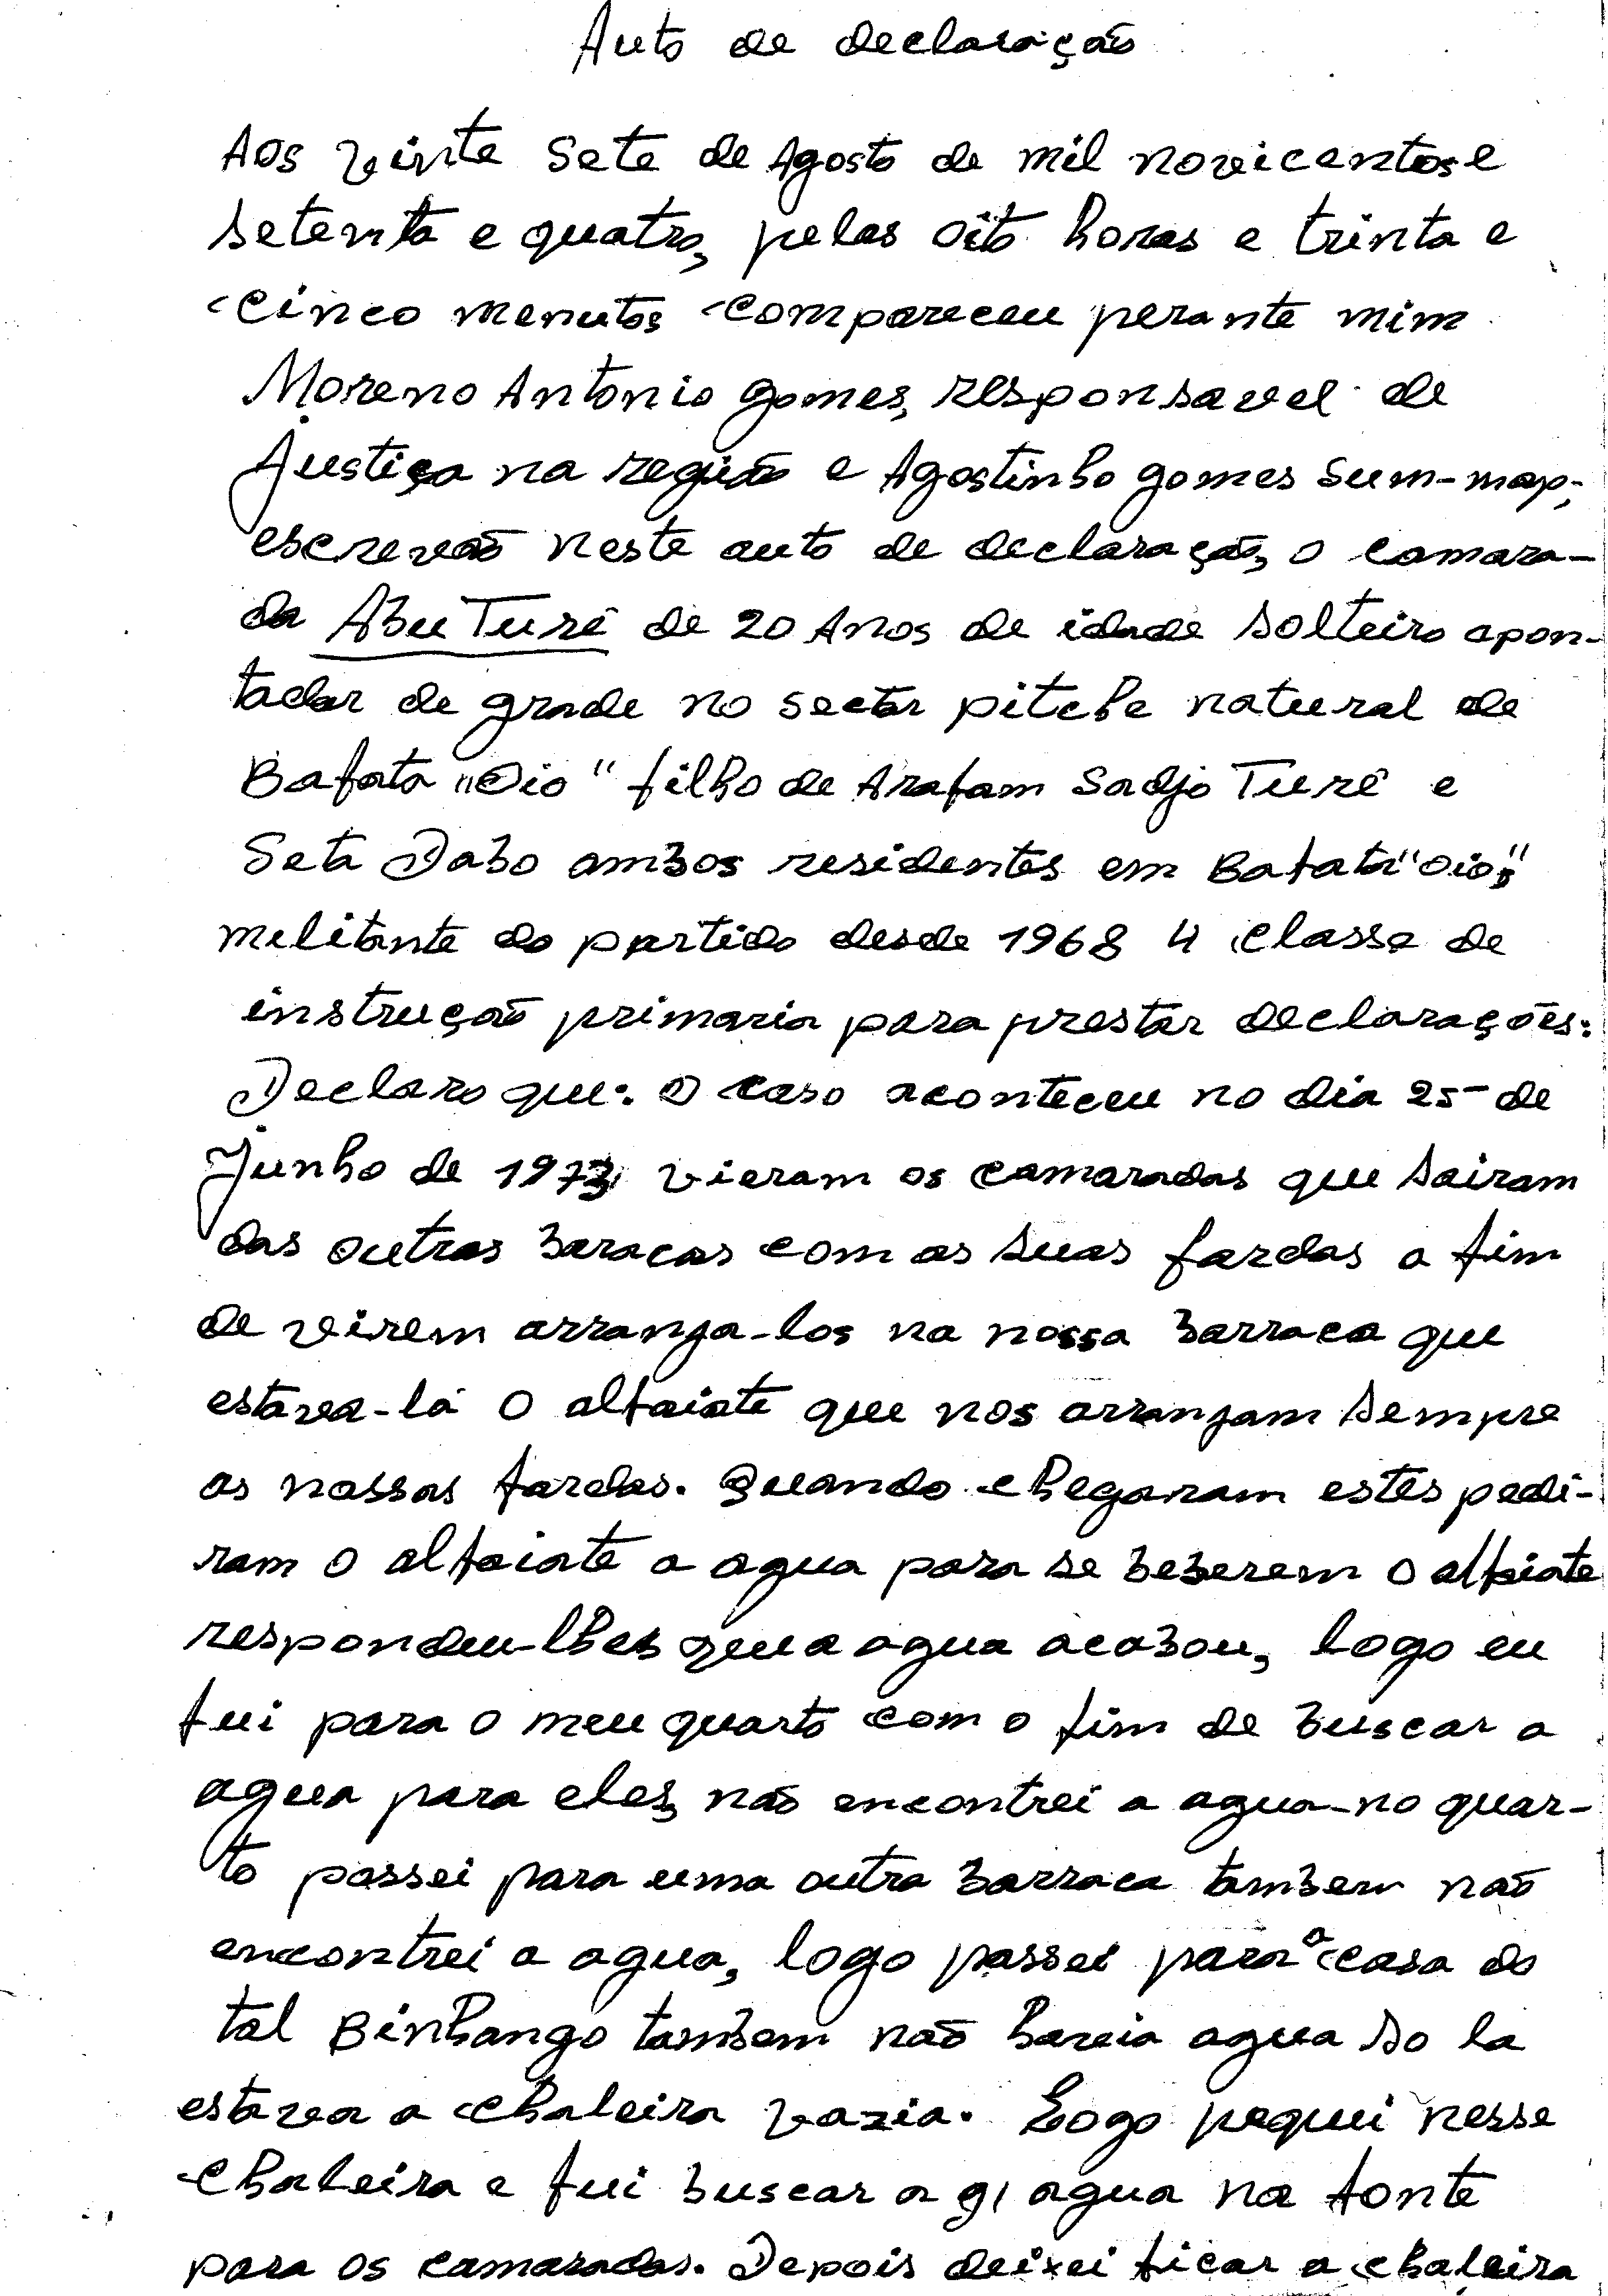 Auto de declaração
Aos vinte sete de Agosto de mil novicentos e
setenta e quatro, pelas oito horas e trinta e
cinco menutos compareceu perante mim
Moreno Antonio gomes, responsavel de
Justiça na região e Agostinho gomes Sum-map,
escrevão neste auto de declaração, o camara-
da Abu Turê de 20 Anos de idade solteiro apon-
tador de grade no sector pitche natural de
Bafata "Oio" filho de Arafam Sadjo Turê e
Seta Dabo ambos residentes em Bafatá "Oio"
melitante do partido desde 1968 4 classe de
instrução primaria para prestar declarações:
Declaro que: O caso aconteceu no dia 25- de
Junho de 1973, vieram os camaradas que sairam
das outras baracas com as suas fardas a fim
de virem arranja-los na nossa barraca que
estava-lá o alfaiate que nos arranjam sempre
as nossas fardas. Quando chegaram estes pedi-
ram o alfaiate a agua para se beberem o alfaiate
respondeu-lhes que a agua acabou, logo eu
fui para o meu quarto com o fim de buscar a
agua para eles, não encontrei a agua-no quar-
to passei para uma outra barraca tambem não
encontrei a agua, logo passei para a casa do
tal Binhango tambem não havia agua so la
estava a chaleira vazia. Logo peguei nesse
chaleira e fui buscar a g/ agua na fonte
para os camaradas. Depois deixei ficar a chaleira